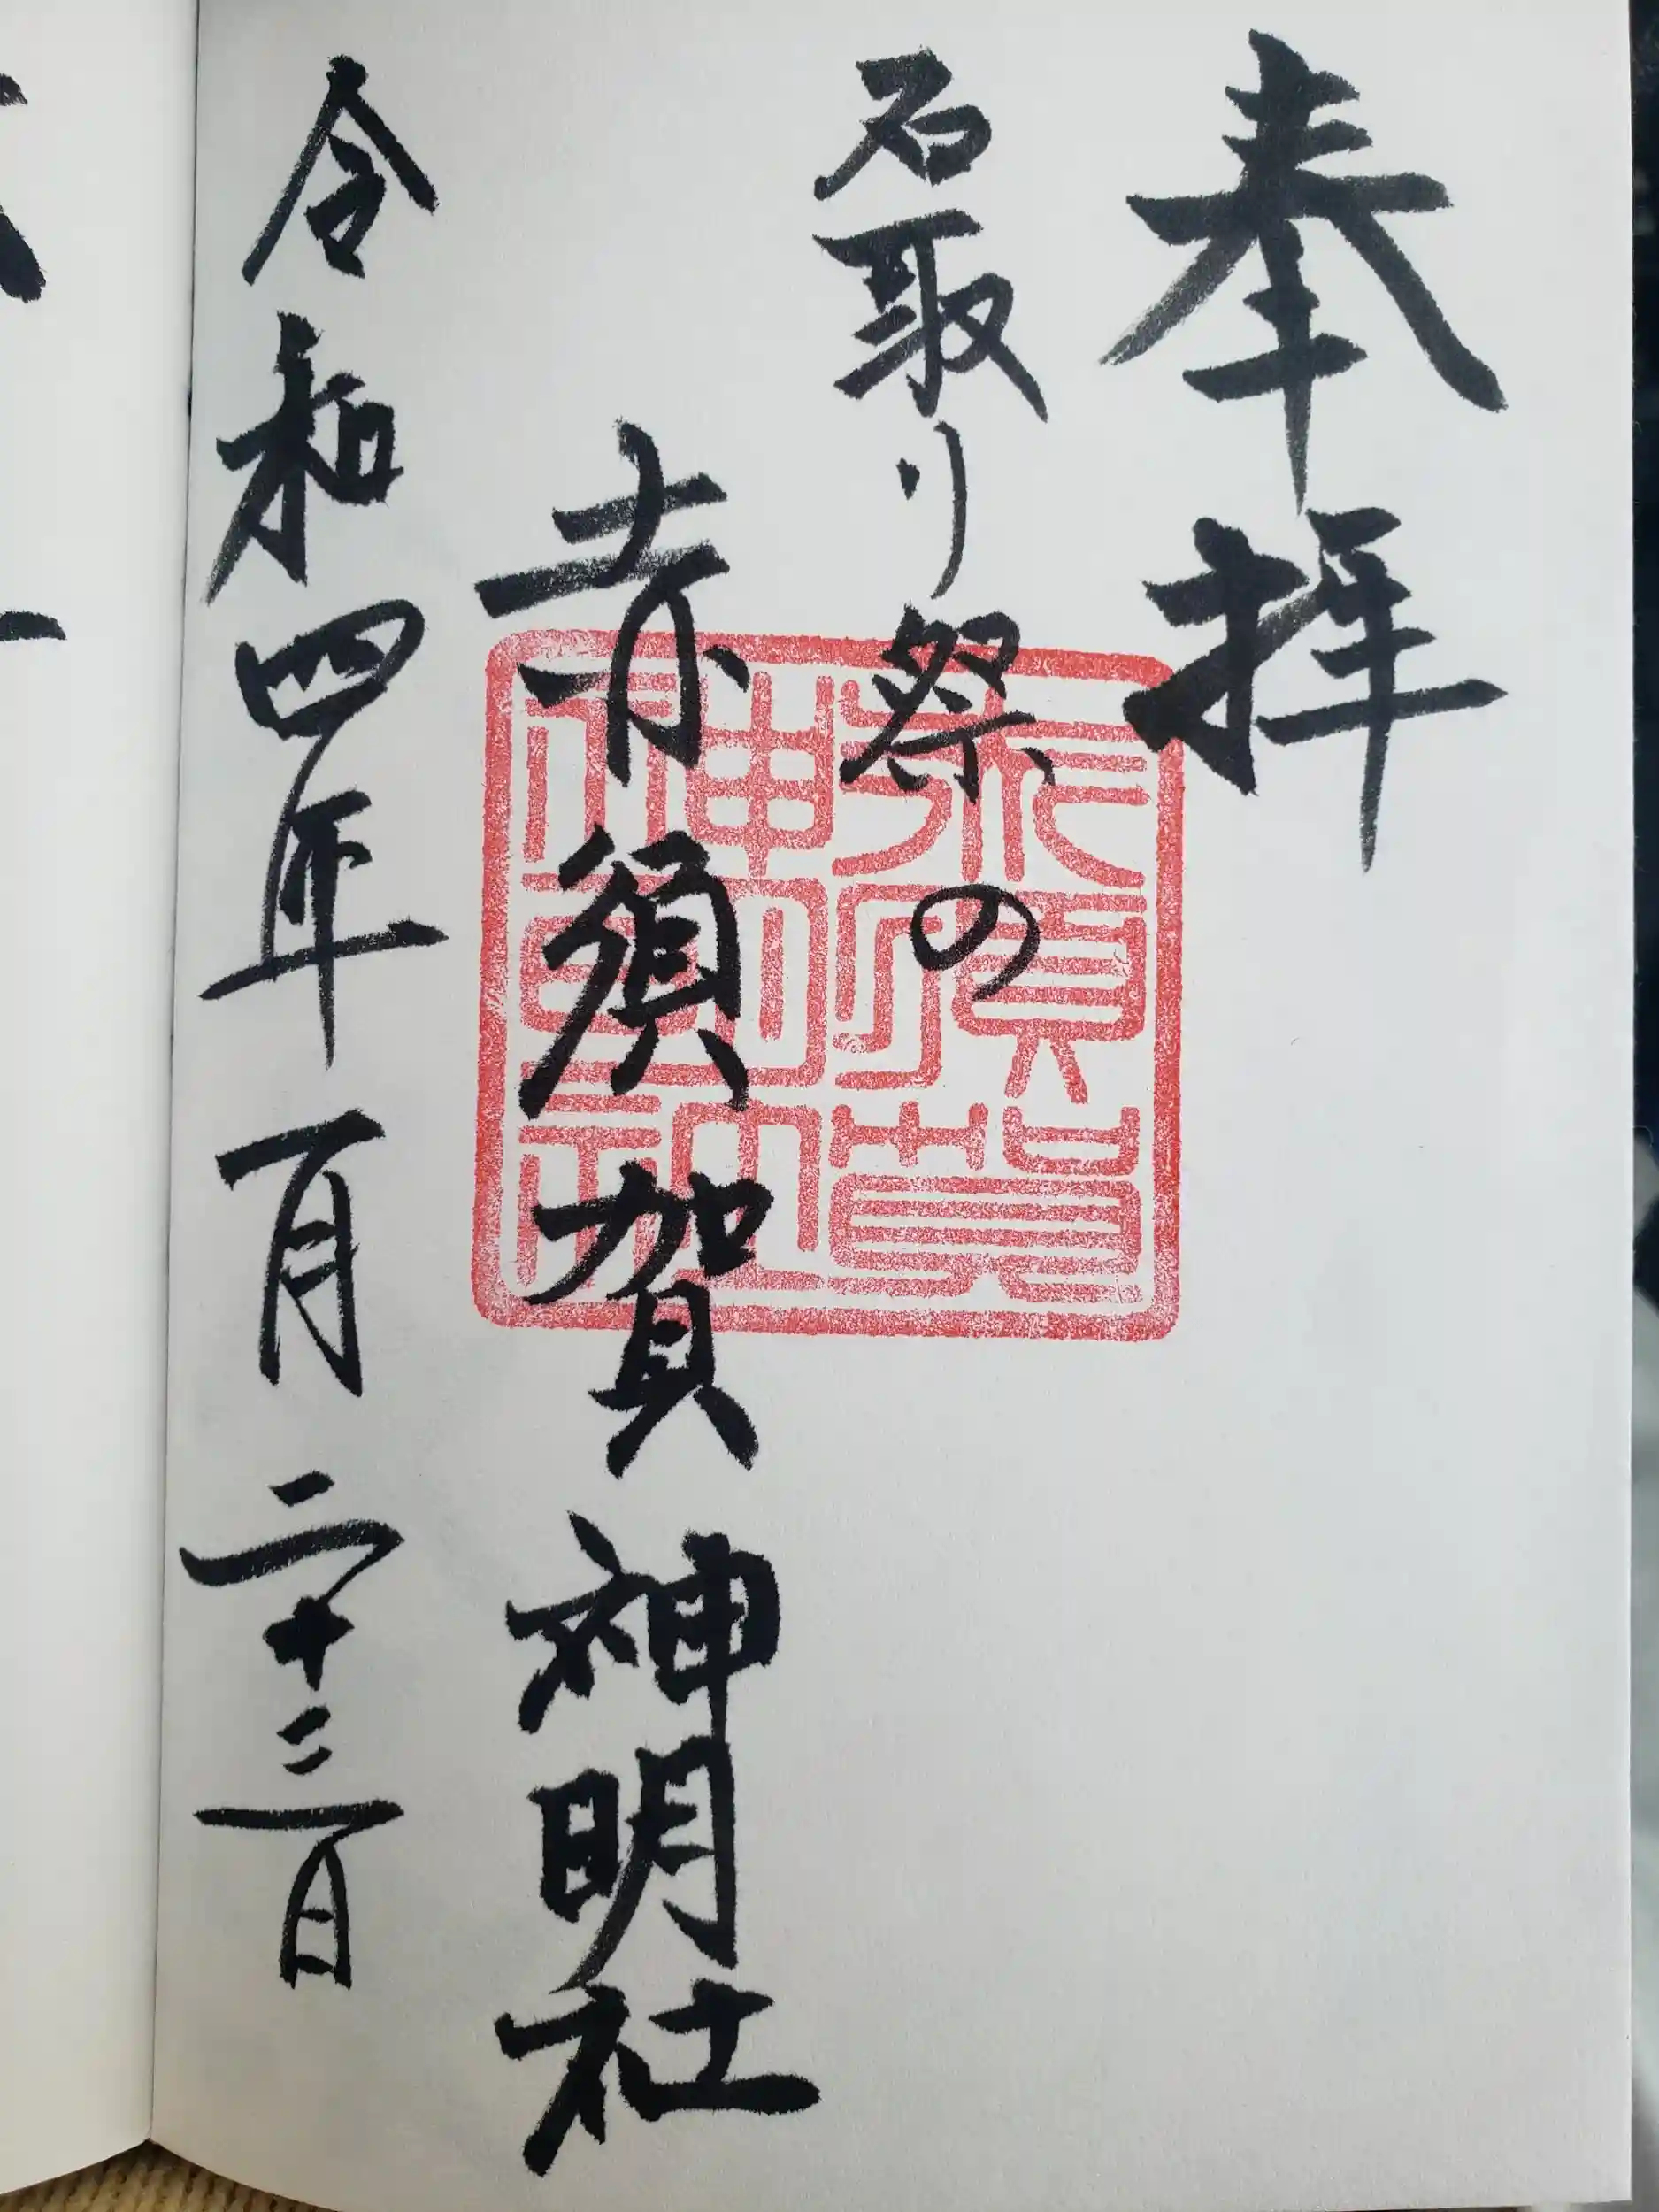 奉拝
石取り祭の
赤須賀神明社
令和四年一月二十三日
赤須賀
神明社